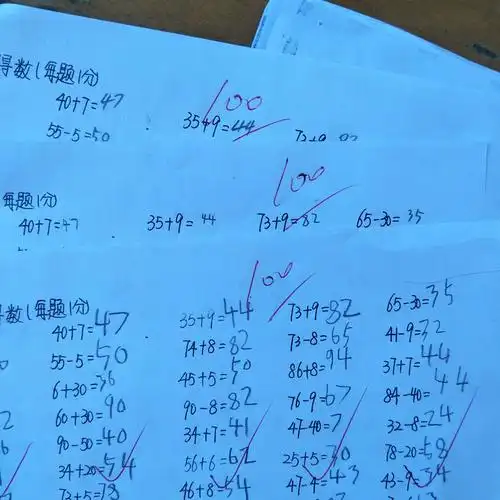 得数(每题1分)
100
40+7=47
35+9=44
55-5=50
73+9
每题1分)
100
40+7=47 35+9=44 73+9=82 65-30=35
数(每题1分)
100
40+7=47 35+9=44 73+9=82 65-30=35
55-5=50 74+8=82 73-8=65 41-9=32
6+30=36 45+5=50 86+8=94 37+7=44
60+30=90 90-8=82 76-9=67 84-40=44
90-50=40 34+7=41 47-40=7 32-8=24
34+20=54 56+6=62 25+5=30 78-20=58
73+5=78 46+8=54 47-4=43 43-9=34